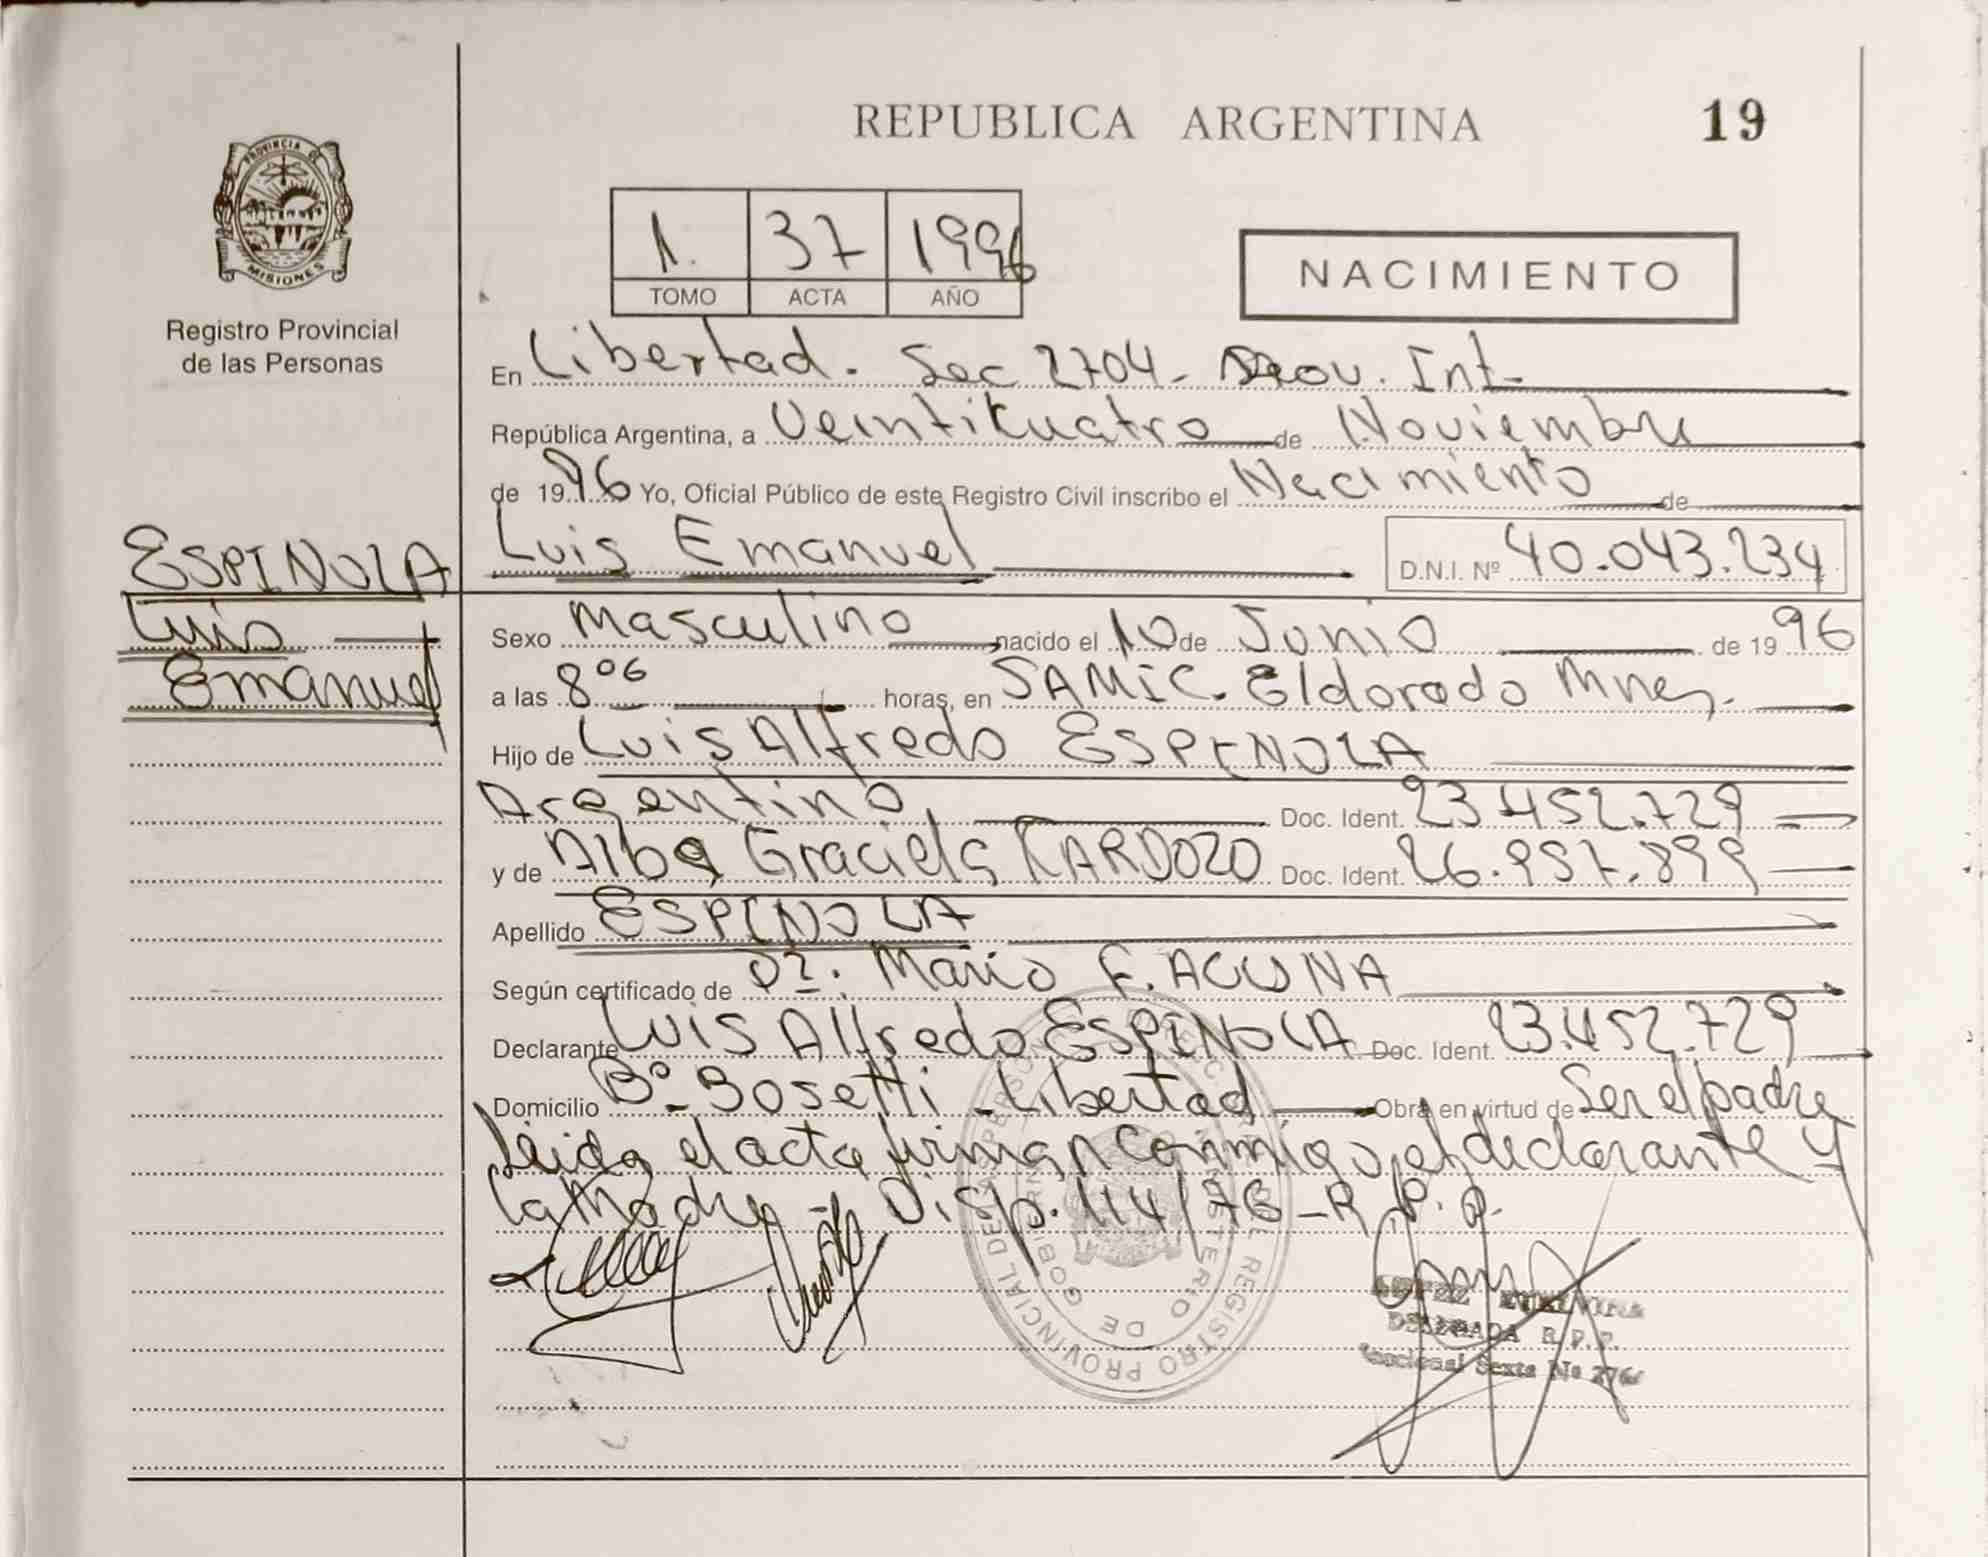 REPUBLICA ARGENTINA
19
PROVINCIA DE
MISIONES
Registro Provincial
de las Personas
1. 37 1996
TOMO ACTA AÑO
NACIMIENTO
En Libertad. Sec 2704- Int-
República Argentina, a Veinticuatro de Noviembre
de 1996 Yo, Oficial Público de este Registro Civil inscribo el Nacimiento de
Luis Emanuel D.N.I. Nº 40.043.234
ESPINOLA
Luis
Emanuel
Sexo Masculino nacido el 10 de Junio de 1996
a las 8º⁶ horas, en SAMIC. Eldorado Mnes.
Hijo de Luis Alfredo ESPINOLA
Argentino Doc. Ident. 23.452.729
y de Alba Graciela CARDOZO Doc. Ident. 26.957.899
Apellido ESPINOLA
Según certificado de Dr. Mario F. ACUNA
Declarante Luis Alfredo ESPINOLA Doc. Ident. 23.452.729
Domicilio Bº- Bosetti - Libertad Obra en virtud de Ser el padre
Leida el acta firman conmigo, el declarante y
la Madre - Disp. 114/76 - R.P.P.
REGISTRO PROVINCIAL DE
MINISTERIO DE GOBIERNO
LOPEZ
DELEGADA R.P.P.
Seccional Sexta No 2704